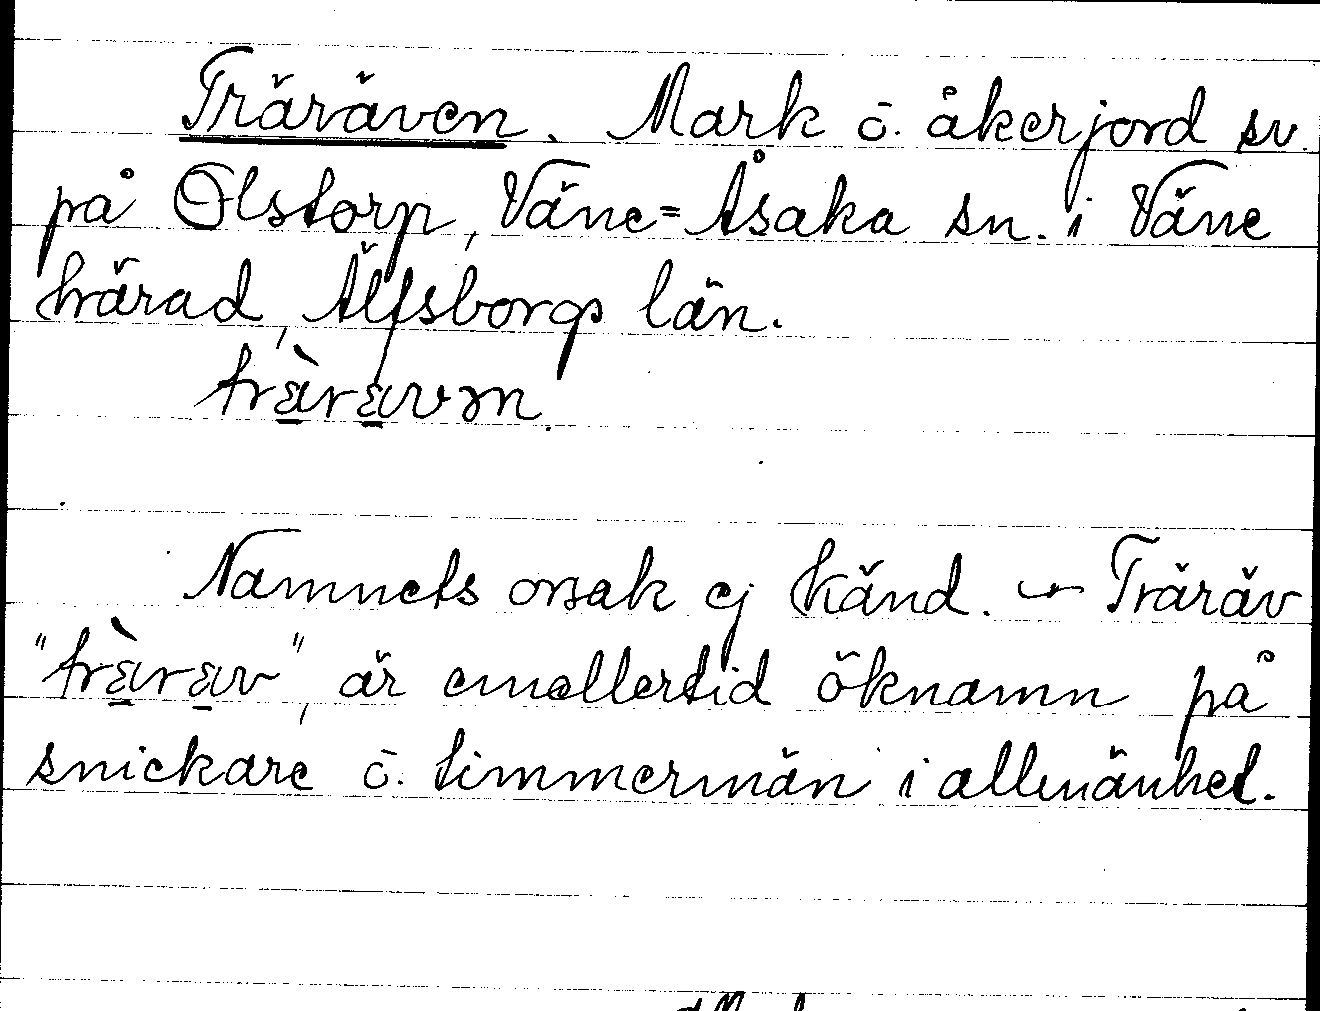 Träräven. Mark o. åkerjord sv.
på Olstorp, Väne=Åsaka sn. i Väne
härad, Älfsborgs län.
träräven.
Namnets orsak ej känd. — Träräv
"träräv", är emellertid öknamn på
snickare o. timmermän i allmänhet.